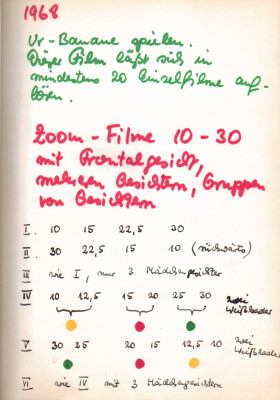 1968
Ur-Banane spielen.
Dieser Film läßt sich in
mindestens 20 Einzelfilme auf-
lösen.
Zoom-Filme 10-30
mit Frontalgesicht,
mehreren Gesichtern, Gruppen
von Gesichtern
I. 10 15 22,5 30
II. 30 22,5 15 10 (rückwärts)
III wie I, nur 3 Mädchengesichter
IV 10 12,5 15 20 25 30 zwei
Weißkader
V 30 25 20 15 12,5 10 zwei
Weißkader
VI wie IV mit 3 Mädchengesichtern